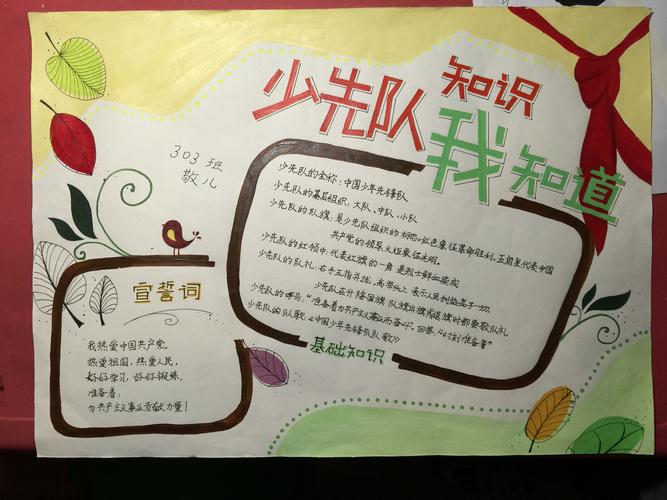 少先队知识
我知道
303班
敬儿
少先队的全称：中国少年先锋队
少先队的基层组织：大队、中队、小队
少先队的队旗：是少先队组织的标志，红色象征革命胜利，五角星代表中国
共产党的领导，火炬象征光明。
少先队的红领巾：代表红旗的一角 是烈士鲜血染成
少先队的队礼：右手五指并拢，高举头上 表示人民利益高于一切.
少先队在升降国旗 队旗出旗或退旗时都要敬队礼
少先队的呼号："准备着为共产主义事业而奋斗，回答："时刻准备着"
少先队的队歌《中国少年先锋队队歌》
基础知识
宣誓词
我热爱中国共产党,
热爱祖国，热爱人民，
好好学习，好好锻炼，
准备着：
为共产主义事业贡献力量！